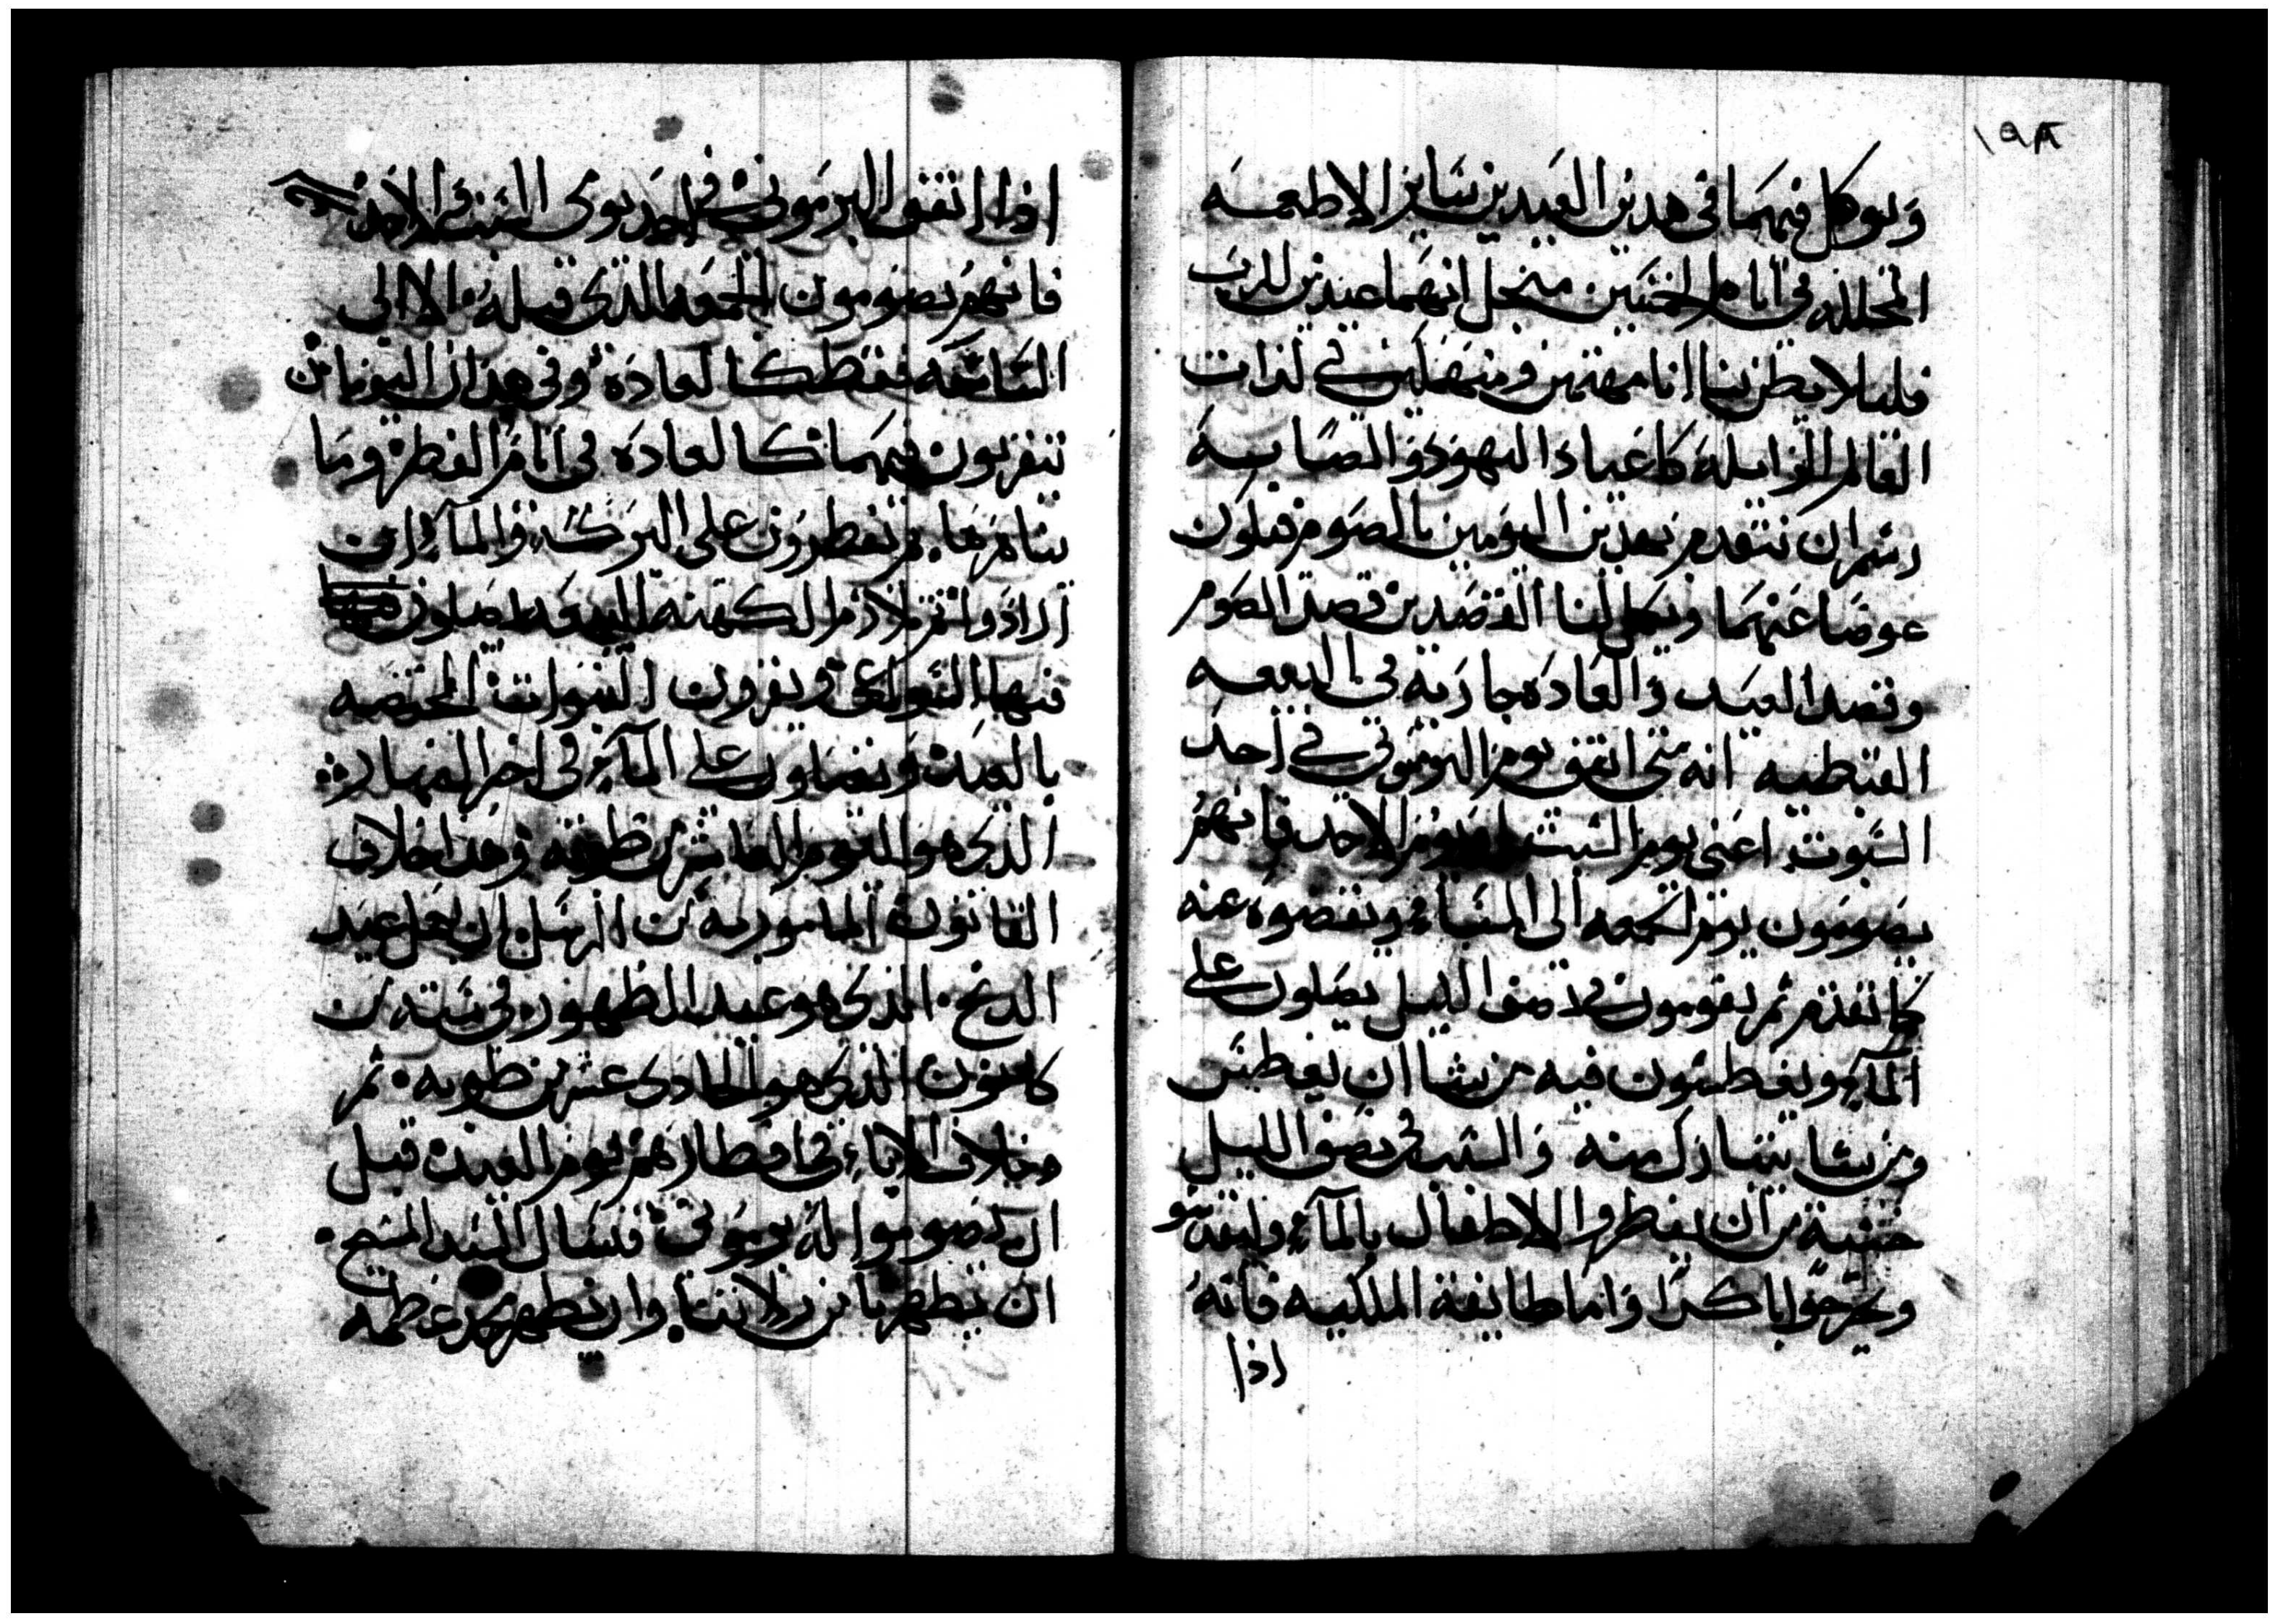 ١٩٨
ويوكل فيهما في هدين العيدين ساير الاطعمه
المحلله في ايام الخمسين منجل انهما عيدين للرب
فليلا يظن بنا انا مهتمين ومنهمكين في لدات
العالم الزايله كاعياد اليهود والصابيه
رسم ان نتقدم بهدين اليومين بالصوم فيكون
عوضا عنهما ويكمل لنا القصدين قصد الصوم
وقصد العيد والعاده جاريه في البيعه
القبطيه انه متى اتفق يوم البرموني في احد
السبوت اعني يوم السبت او يوم الاحد فانهم
يصومون يوم الجمعه الى المساء ويقضوه عنه
كما تقدم ثم يقومون نصف الليل يصلون على
الماء ويغطسون فيه من يشا ان يغطس
ومن يشا يتبارك منه والسبب في نصف الليل
خشية من ان يفطروا الاطفال بالماء وليقدسو
ويخرجوا باكرا واما طايفة الملكيه فانه
اذا
اذا اتفق البرموني في احد يومي السبت والاحد
فانهم يصومون الجمعه الذي قبله الا الى
التاسعه فقط كالعاده وفي هدان اليومان
يتقربون فيهما كالعاده في ايام الفطر وما
يفطرون على البركه والماء ان
ارادوا ثم الكهنه البيعه يصلون
فيها ويقرون النبوات المختصه
بالعيد ويصلون على الماء في اخر النهار
الذي هو اليوم العاشر من طوبه وهدا خلاف
القانون المامور به من الرسل ان يعمل عيد
الدنح الذي هو عيد الظهور في سته من
كانون الذي هو الحادي عشر من طوبه ثم
وخلاف الاباء في افطارهم يوم العيد قبل
ان يصوموا له برموني فنسال السيد المسيح
ان يطهرنا من زلاتنا وان يظهر مجد عظمه